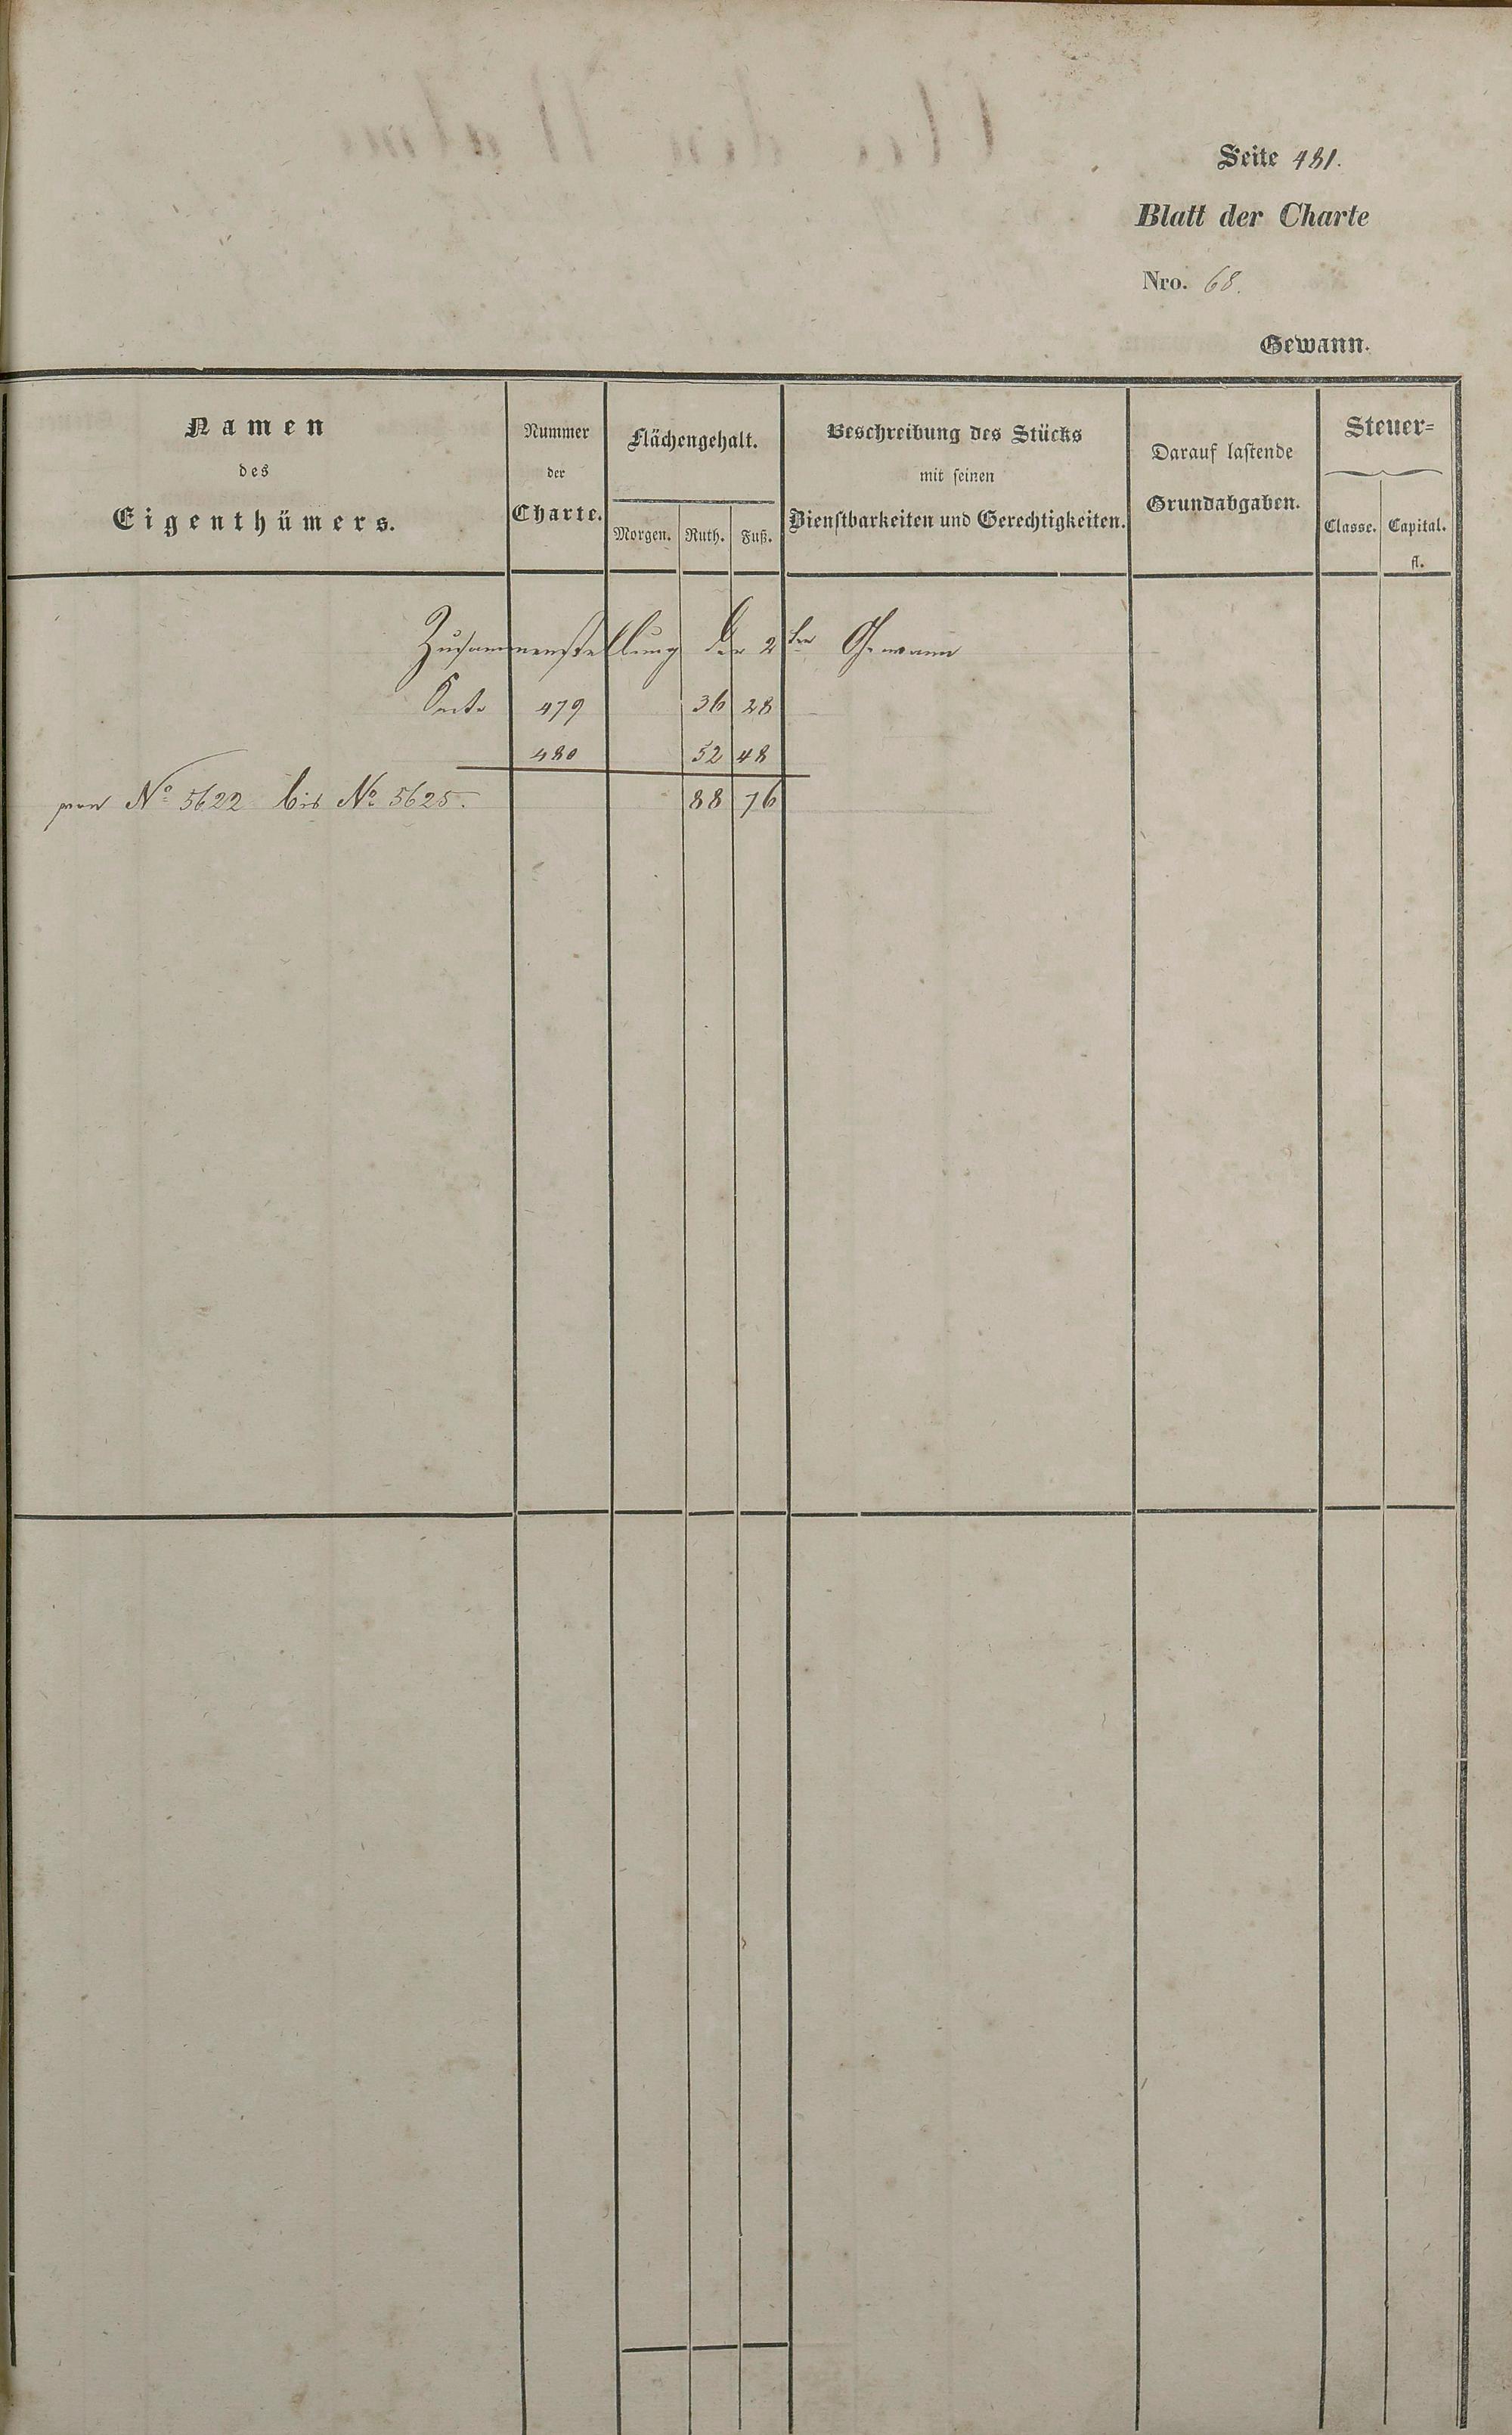 Seite 481.
Blatt der Charte
Nro. 68.
Gewann.
Namen
des
Eigenthümers.
Nummer
der
Charte.
Flächengehalt.
Morgen. Ruth. Fuß.
Beschreibung des Stücks
mit seinen
Dienstbarkeiten und Gerechtigkeiten.
Darauf lastende
Grundabgaben.
Steuer=
Classe. Capital.
fl.
Zusammenstellung der 2ten Gewann
Seite 479 36 28
480 52 48
von No 5622 bis No 5625. 88 76